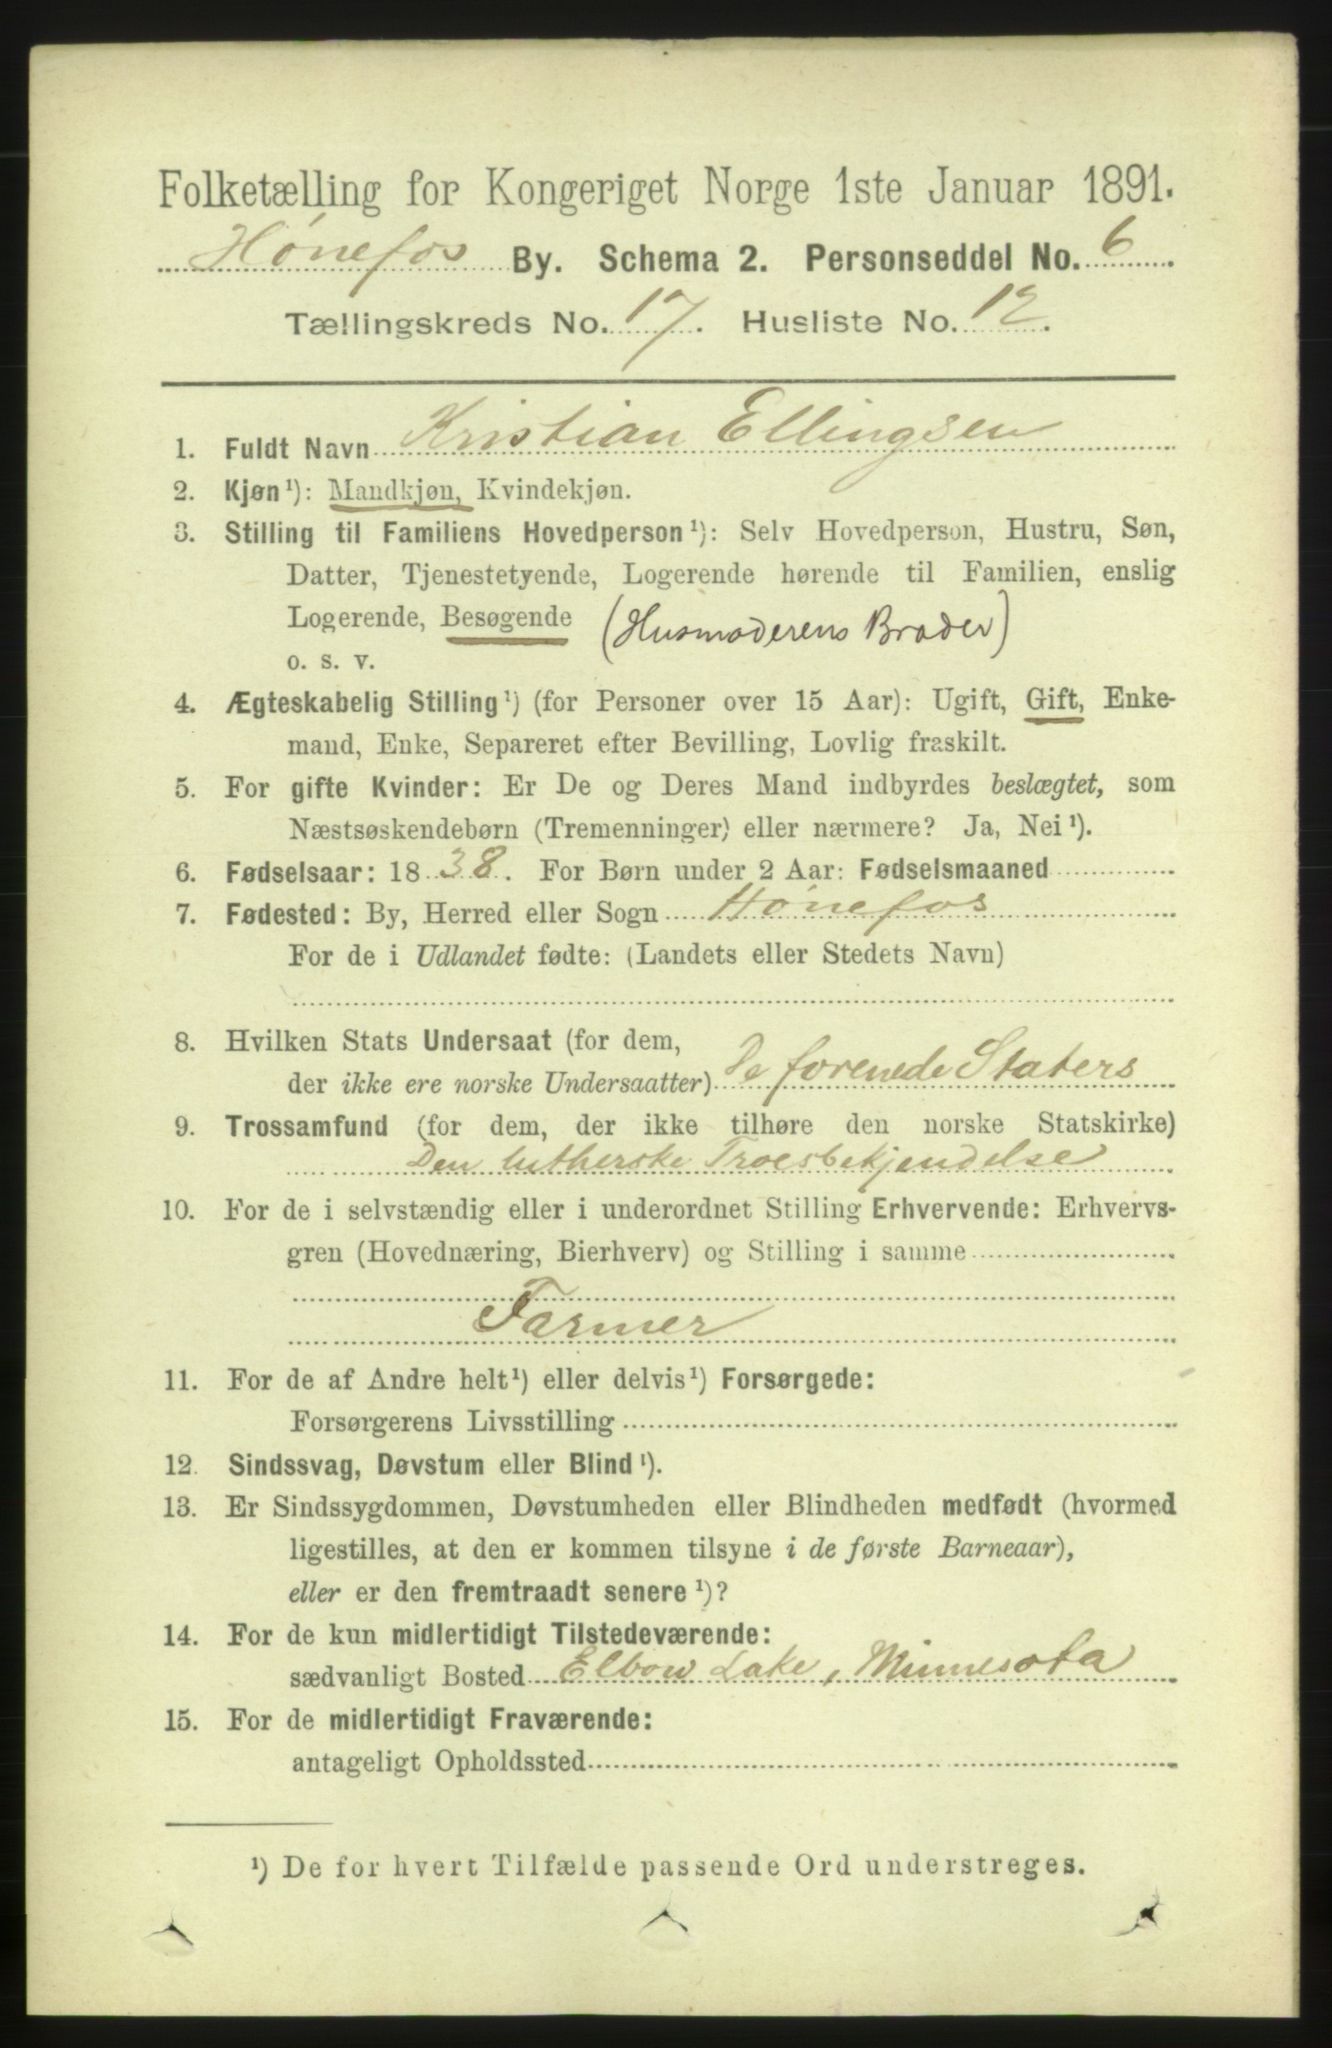 Folketælling for Kongeriget Norge 1ste Januar 1891.
Hønefos By. Schema 2. Personseddel No. 6.
Tællingskreds No. 17. Husliste No. 12.
1. Fuldt Navn Kristian Ellingsen
2. Kjøn¹): Mandkjøn, Kvindekjøn.
3. Stilling til Familiens Hovedperson¹): Selv Hovedperson, Hustru, Søn,
Datter, Tjenestetyende, Logerende hørende til Familien, enslig
Logerende, Besøgende (Husmoderens Broder)
o. s. v.
4. Ægteskabelig Stilling¹) (for Personer over 15 Aar): Ugift, Gift, Enke-
mand, Enke, Separeret efter Bevilling, Lovlig fraskilt.
5. For gifte Kvinder: Er De og Deres Mand indbyrdes beslægtet, som
Næstsøskendebørn (Tremenninger) eller nærmere? Ja, Nei¹).
6. Fødselsaar: 1838. For Børn under 2 Aar: Fødselsmaaned
7. Fødested: By, Herred eller Sogn Hønefos
For de i Udlandet fødte: (Landets eller Stedets Navn)
8. Hvilken Stats Undersaat (for dem,
der ikke ere norske Undersaatter) De forenede Staters
9. Trossamfund (for dem, der ikke tilhøre den norske Statskirke)
Den lutherske Troesbekjendelse
10. For de i selvstændig eller i underordnet Stilling Erhvervende: Erhvervs-
gren (Hovednæring, Bierhverv) og Stilling i samme
Farmer
11. For de af Andre helt¹) eller delvis¹) Forsørgede:
Forsørgerens Livsstilling
12. Sindssvag, Døvstum eller Blind¹).
13. Er Sindssygdommen, Døvstumheden eller Blindheden medfødt (hvormed
ligestilles, at den er kommen tilsyne i de første Barneaar),
eller er den fremtraadt senere¹)?
14. For de kun midlertidigt Tilstedeværende:
sædvanligt Bosted Elbow Lake, Minnesota
15. For de midlertidigt Fraværende:
antageligt Opholdssted
¹) De for hvert Tilfælde passende Ord understreges.